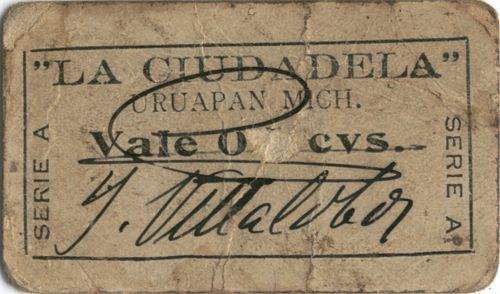 "LA CIUDADELA"
URUAPAN MICH.
Vale 0 cvs.
J. Villalobos
SERIE A
SERIE A